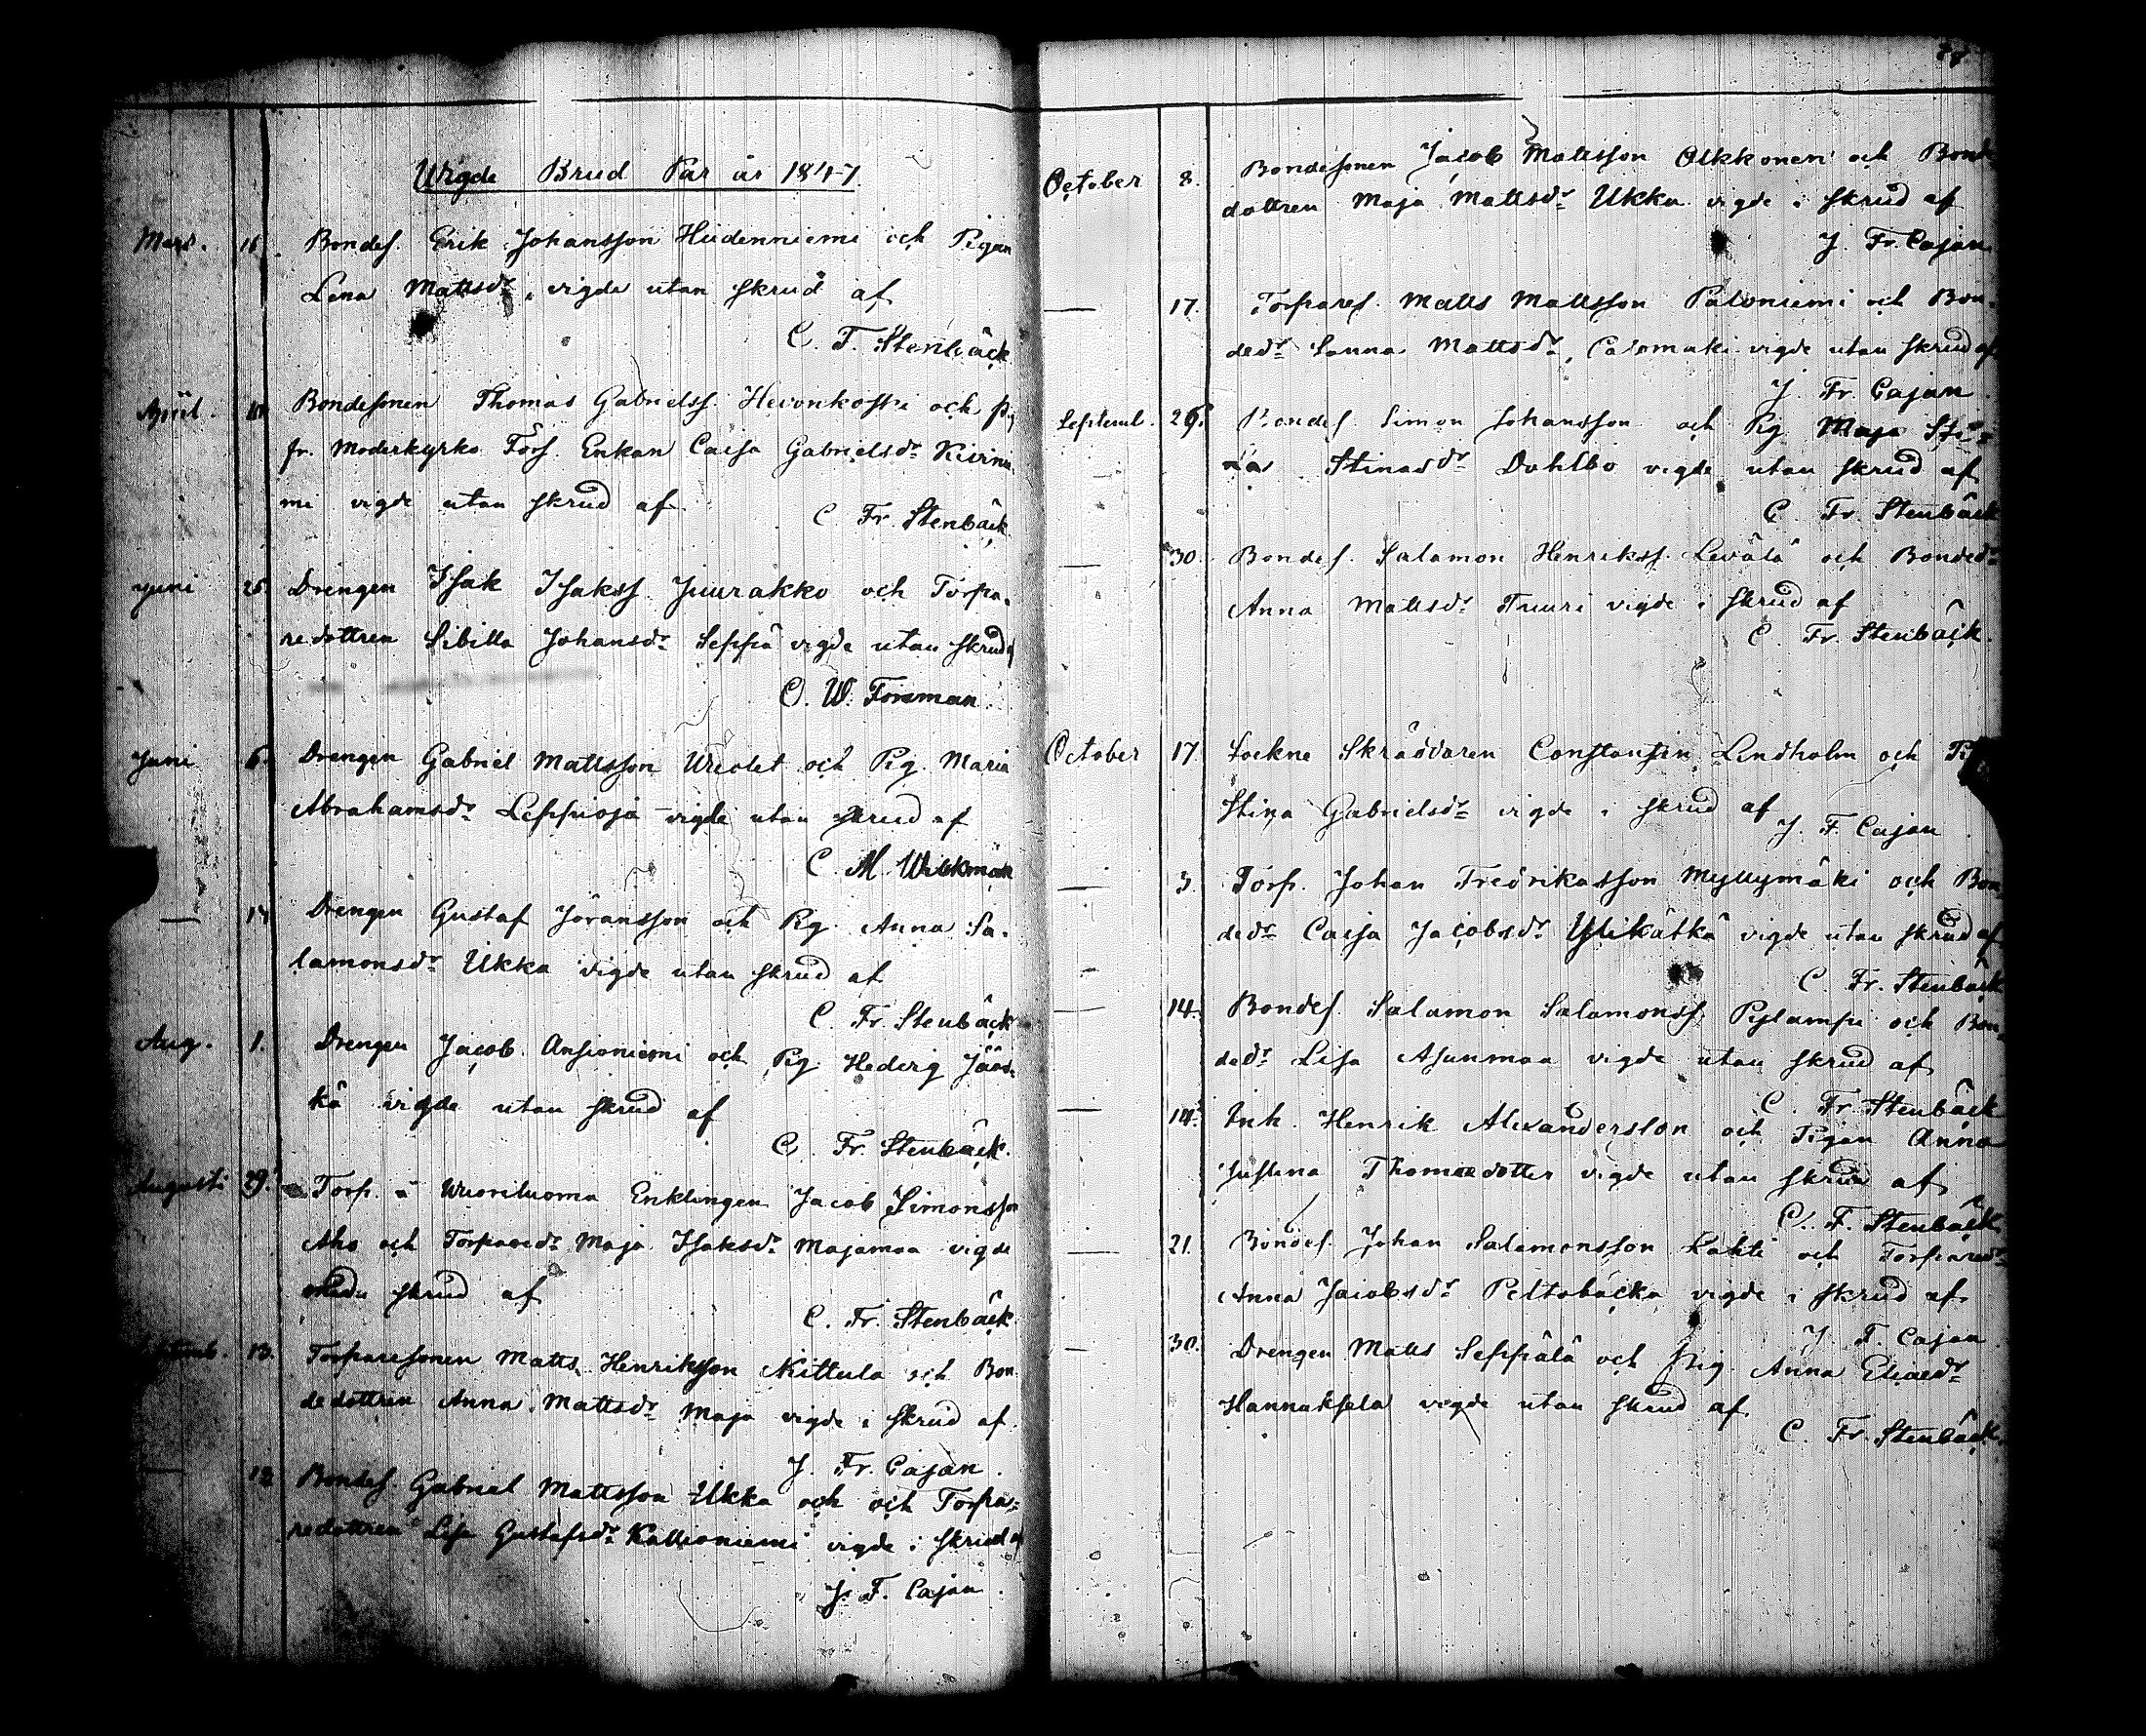 Wigde Brud Par år 1847.
Mars. 16. Bondes. Erik Johansson Hiidenniemi och Pigan
Lena Mattsdr, vigde utan skrud af
C. F. Stenbäck
April. Bondesonen Thomas Gabrielss. Hevonkoski och
fr. Moderkyrko Förs. Enkan Caisa Gabrielsdr Kivinie
mi vigde utan skrud af
C Fr. Stenbäck
Juni 25. Drengen Isak Isakss. Juurakko och Torpa-
redottren Sibilla Johansdr Seppä vigde utan skrud af
O. W. Forsman
Juni 6. Drengen Gabriel Mattsson och Pig. Maria
Abrahamsdr Leppioja vigde utan skrud af
C. M. Wickman
— 14 Drengen Gustaf Jöransson och Pig. Anna Sa-
lamonsdr Ukka vigde utan skrud af
C. Fr. Stenbäck
Aug. 1. Drengen Jacob Ansioniemi och Pig. Hedvig Jääs-
kä vigde utan skrud af
C. Fr. Stenbäck.
Augusti 29. Torp. å Wuoriluoma Enklingen Jacob Simonsson
Aho och Torparedr Maja Isaksdr Majamaa vigde
skrud af
C. Fr. Stenbäck
13. Torparesonen Matts Henriksson Kittula och Bon
dedottren Anna Mattsdr Maja vigde i skrud af
J. Fr. Cajan.
— 12 Bondes. Gabriel Mattsson Ukka och och Torpa-
redottren Lisa Gustafsdr Kallioniemi vigde i skrud af
J. F. Cajan.
October 8. Bondesonen Jacob Mattsson Olkkonen och Bonde
dottren Maja Mattsdr Ukku vigde i skrud af
J. Fr. Cajan
— 17. Torpares. Matts Mattsson Paloniemi och Bon-
dedr Sanna Mattsdr, vigde utan skrud af
J. Fr. Cajan
Septemb. 26. Bondes. Simon Johansson och Pig Maja
Stinasdr Dahlbo vigde utan skrud af
C Fr. Stenbäck
— 30. Bondes. Salamon Henrikss. Levälä och Bondedr
Anna Mattsdr Tuuri vigde i skrud af
C. Fr. Stenbäck.
October 17. Sockne Skräddaren Constantin Lindholm och
Stina Gabrielsdr vigde i skrud af
J. F. Cajan
— 3 Torp. Johan Fredriksson Myllymäki och Bon
dedr Caisa Jacobsdr Ylikätkä vigde utan skrud af
C. Fr. Stenbäck
— 14. Bondes. Salamon Salamonss. Pylampi och Bon-
dedr Lisa Asunmaa vigde utan skrud af
C. Fr. Stenbäck
— 14. Inh. Henrik Alexandersson och Pigan Anna
Justina Thomædotter vigde utan skrud af
C. F. Stenbäck
— 21. Bondes. Johan Salamonsson Lahti och Torparedr
Anna Jacobsdr Peltobacka vigde i skrud af
J. F. Cajan
— 30. Drengen Matts Seppälä och Pig Anna Eliaedr
Hannuksela vigde utan skrud af
C. Fr. Stenbäck.